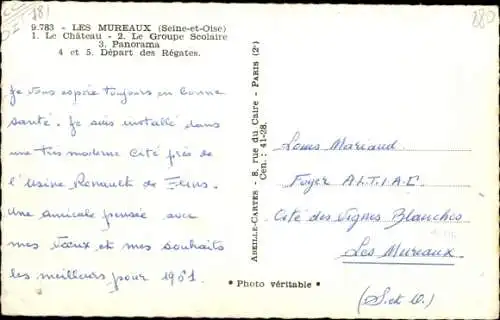 181
180
9.783 - LES MUREAUX (Seine-et-Oise)
1. Le Château - 2. Le Groupe Scolaire
3. Panorama
4 et 5. Départ des Régates.
Je vous espère toujours en bonne
santé. Je suis installé dans
une très moderne Cité près de
l'Usine Renault de Flins.
Une amicale pensée avec
mes Vœux et mes souhaits
les meilleurs pour 1961
ABEILLE-CARTES - 8, rue du Caire - PARIS (2e)
Cen. : 41-28.
Louis Mariaud
Foyer A.L.T.I.A.C
Cité des Vignes Blanches
Les Mureaux
(S. et O.)
* Photo véritable *